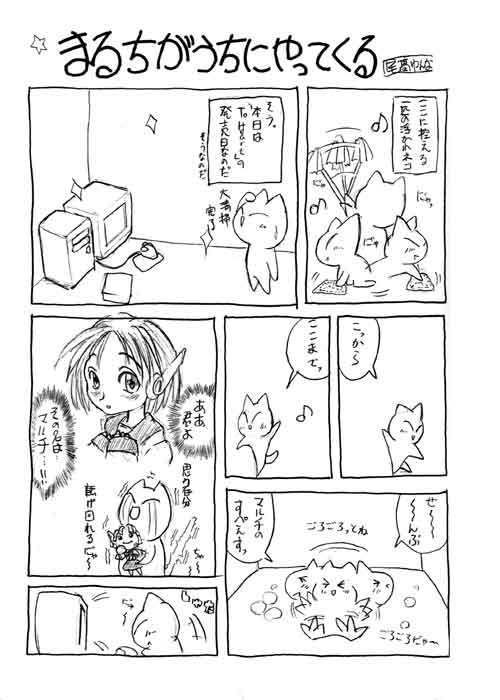 まるちがうちにやってくる
ここに控える
一匹の浮かれネコ
にゃっ
にゃ
そう。
本日は
「To Heart」の
発売日なのだ
そうなのだ
大清掃
完了
こっから〜
ここまでっ
せ〜
〜んぶ
マルチの
すぺえすっ
ごろごろっとね
ごろごろだゃ〜
ああ
君よ
その名は
マルチ…!!
思う存分
転げ回れるにゃ〜